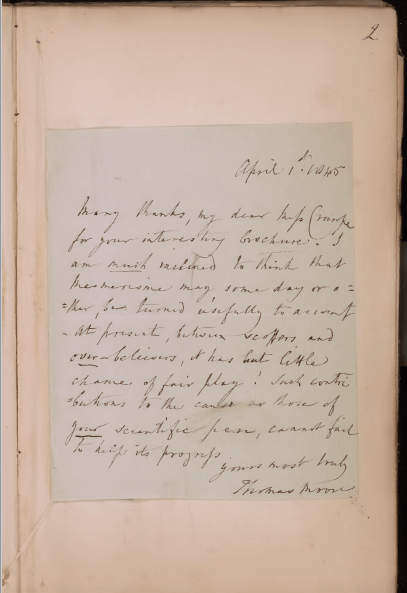 2
April 1st. 1845
Many thanks, my dear Miss Crumpe
for your interesting brochure. I
am much inclined to think that
Mesmerisme may some day or o=
=ther, be turned usefully to account
- At present, between scoffers and
over-believers, it has but little
chance of fair play! Such contri
=butions to the cause as those of
your scientific pen, cannot fail
to help its progress
yours most truly
Thomas Moore.